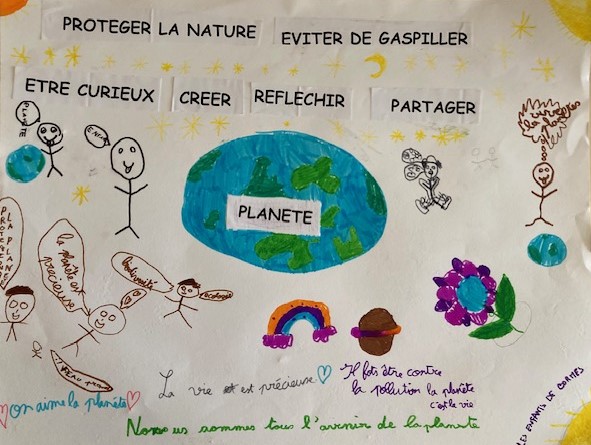 PROTEGER LA NATURE
EVITER DE GASPILLER
ETRE CURIEUX
CREER
REFLECHIR
PARTAGER
PLANETE
PLANETE
la planète est précieuse
biodiversité
écologie
La vie est précieuse
Il fots être contre
la pollution la planète
c'est la vie
on aime la planète
Nous sommes tous l'avenir de la planete
LES ENFANTS DE